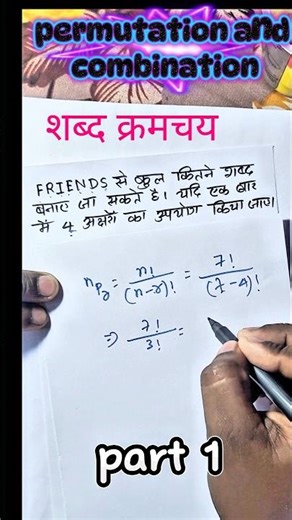 permutation and
combination
शब्द क्रमचय
FRIENDS से कुल कितने शब्द
बनाए जा सकते है। यदि एक बार
में 4 अक्षरों का उपयोग किया जाए।
nPr = n!/(n-r)! = 7!/(7-4)!
⇒ 7!/3! =
part 1